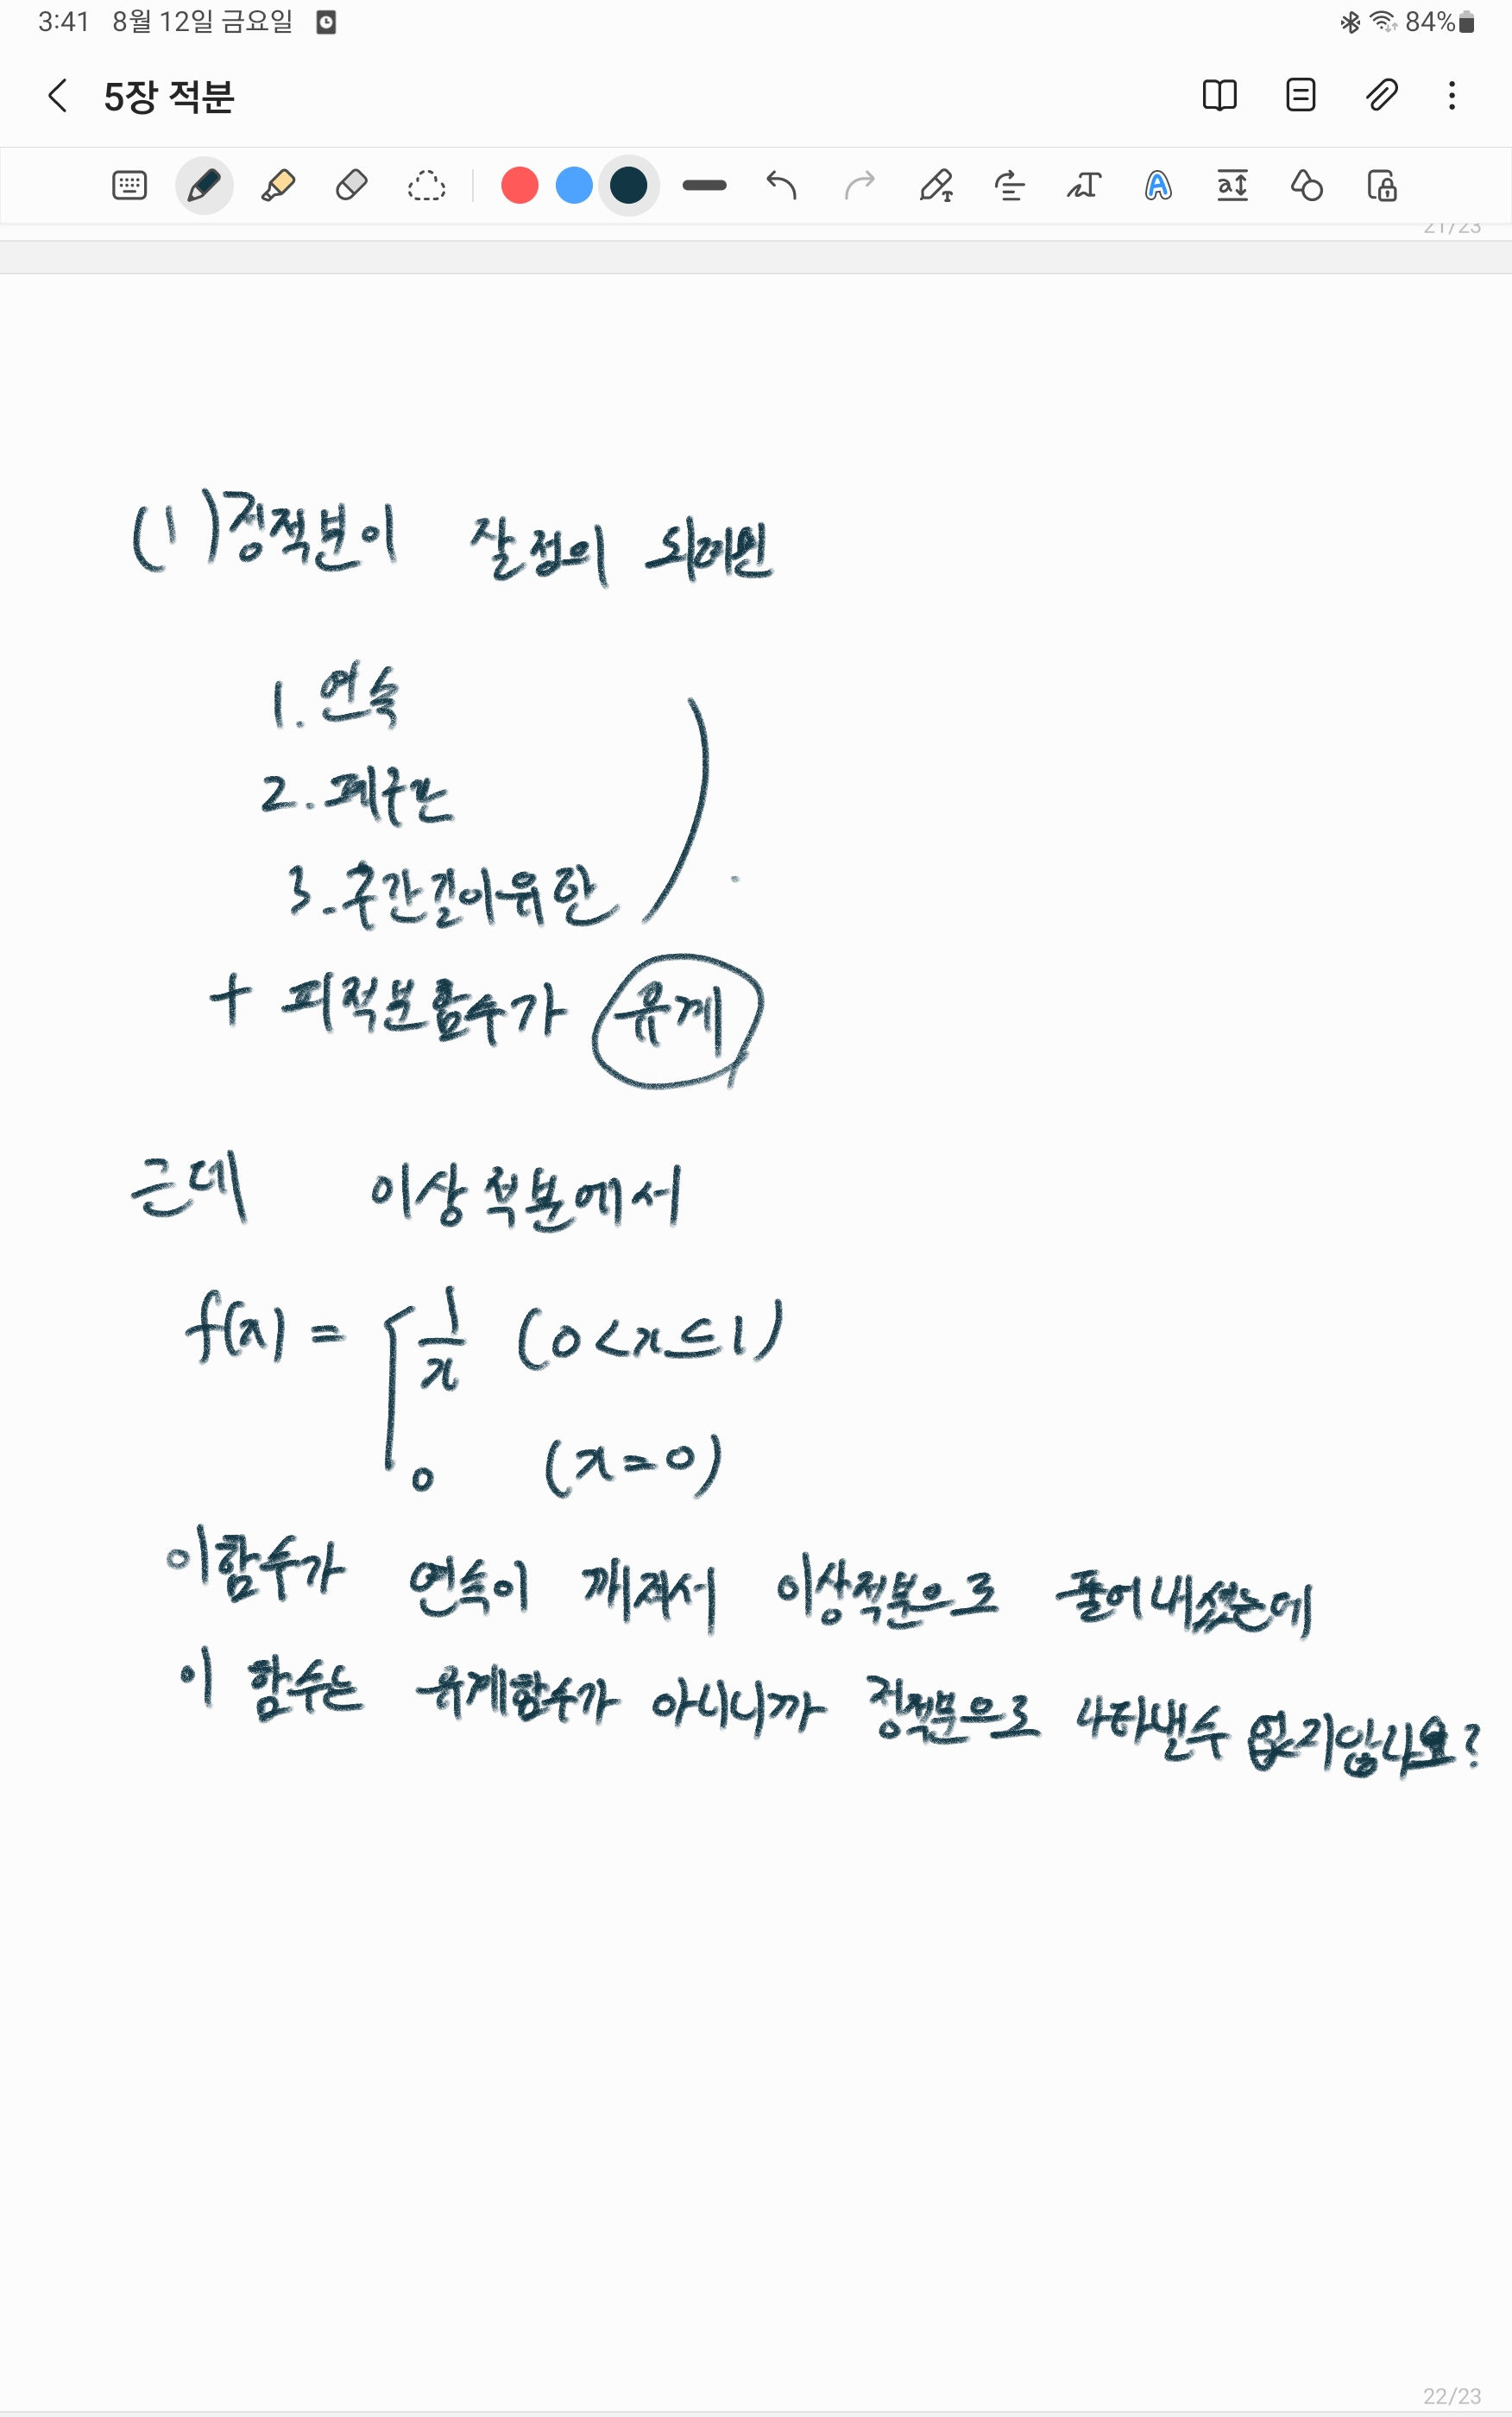 3:41 8월 12일 금요일 84%
5장 적분
21/23
(1) 정적분이 잘 정의 되려면
1. 연속
2. 폐구간
3. 구간길이유한
+ 피적분함수가 유계
근데 이상적분에서
f(x) = 1/x (0<x≤1)
0 (x=0)
이함수가 연속이 깨져서 이상적분으로 풀어내셨는데
이 함수는 유계함수가 아니니까 정적분으로 나타낼수 없지않나요?
22/23